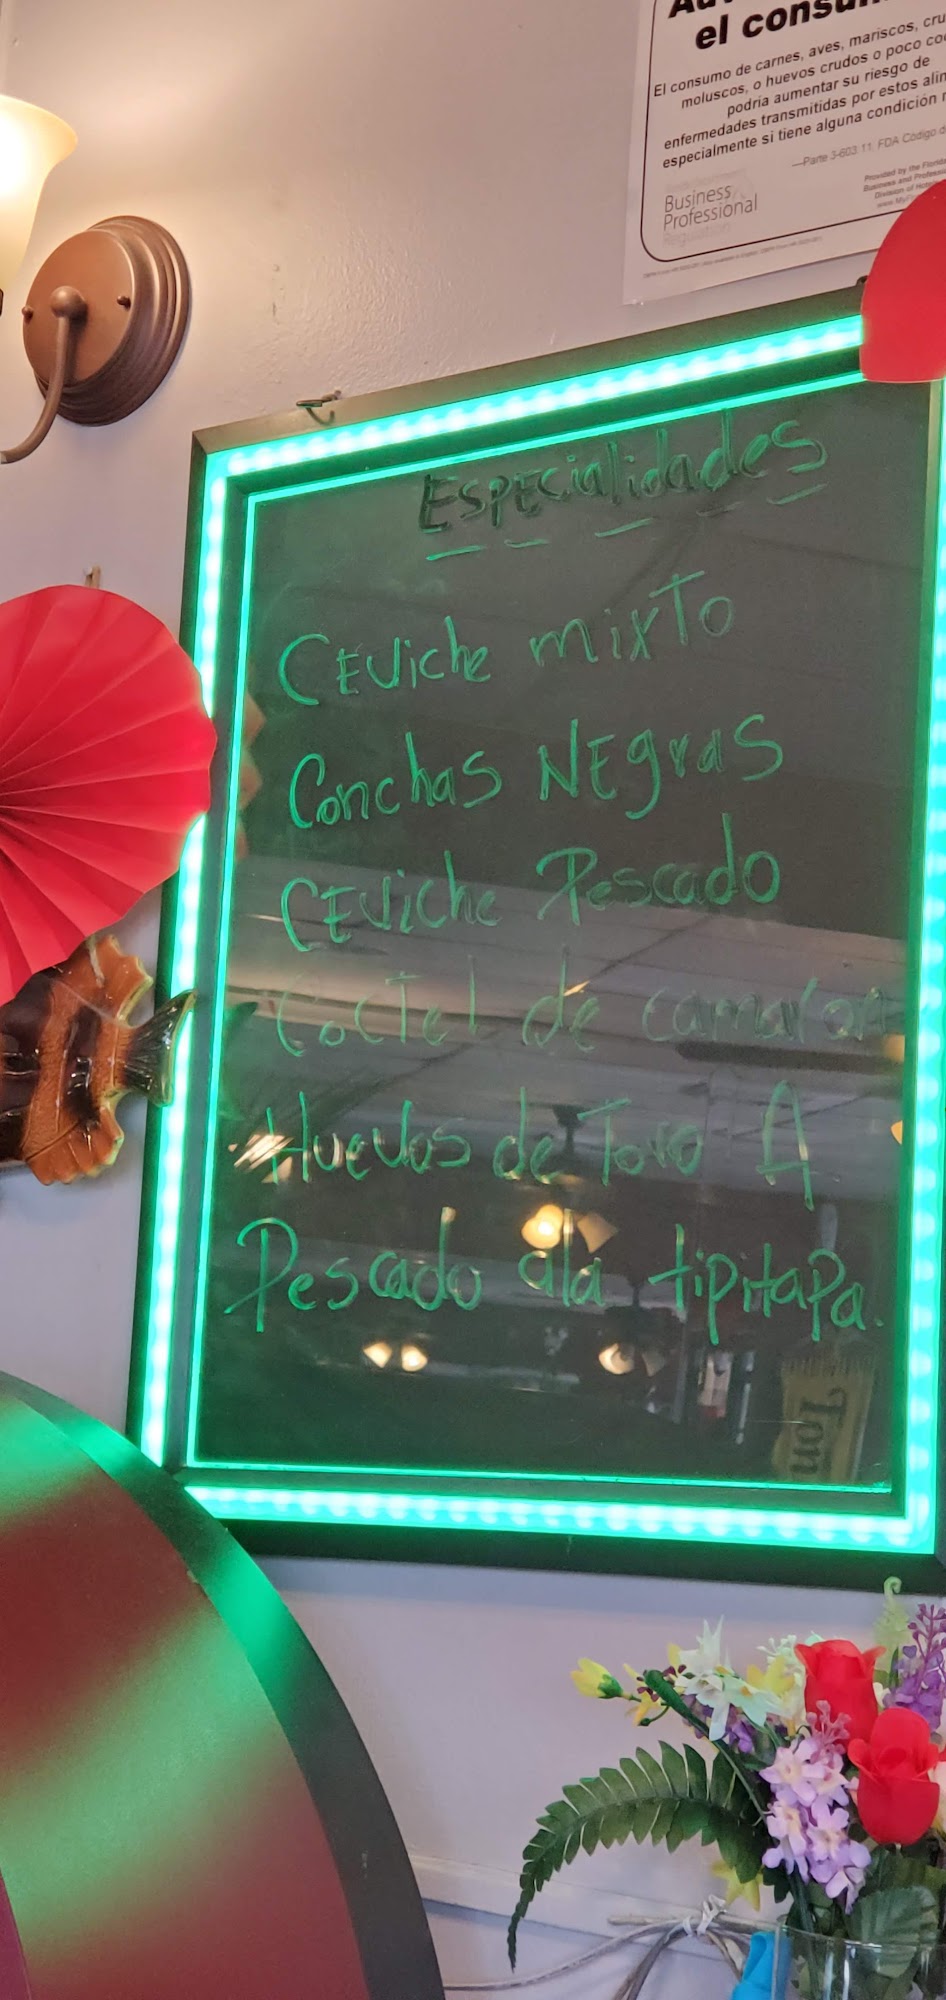 el consum
El consumo de carnes, aves, mariscos, cru
moluscos, o huevos crudos o poco co
podría aumentar su riesgo de
enfermedades transmitidas por estos alim
especialmente si tiene alguna condición
—Parte 3-603.11, FDA Código d
Business
Professional
Regulation
Provided by the Florida
Business and Profess
Division of Hote
ESPEcialidades
CEViche mixTo
Conchas NEgras
CEViche Pescado
CocTel de camaron
Huevos de Toro A
Pescado ala tipitapa.
Ton